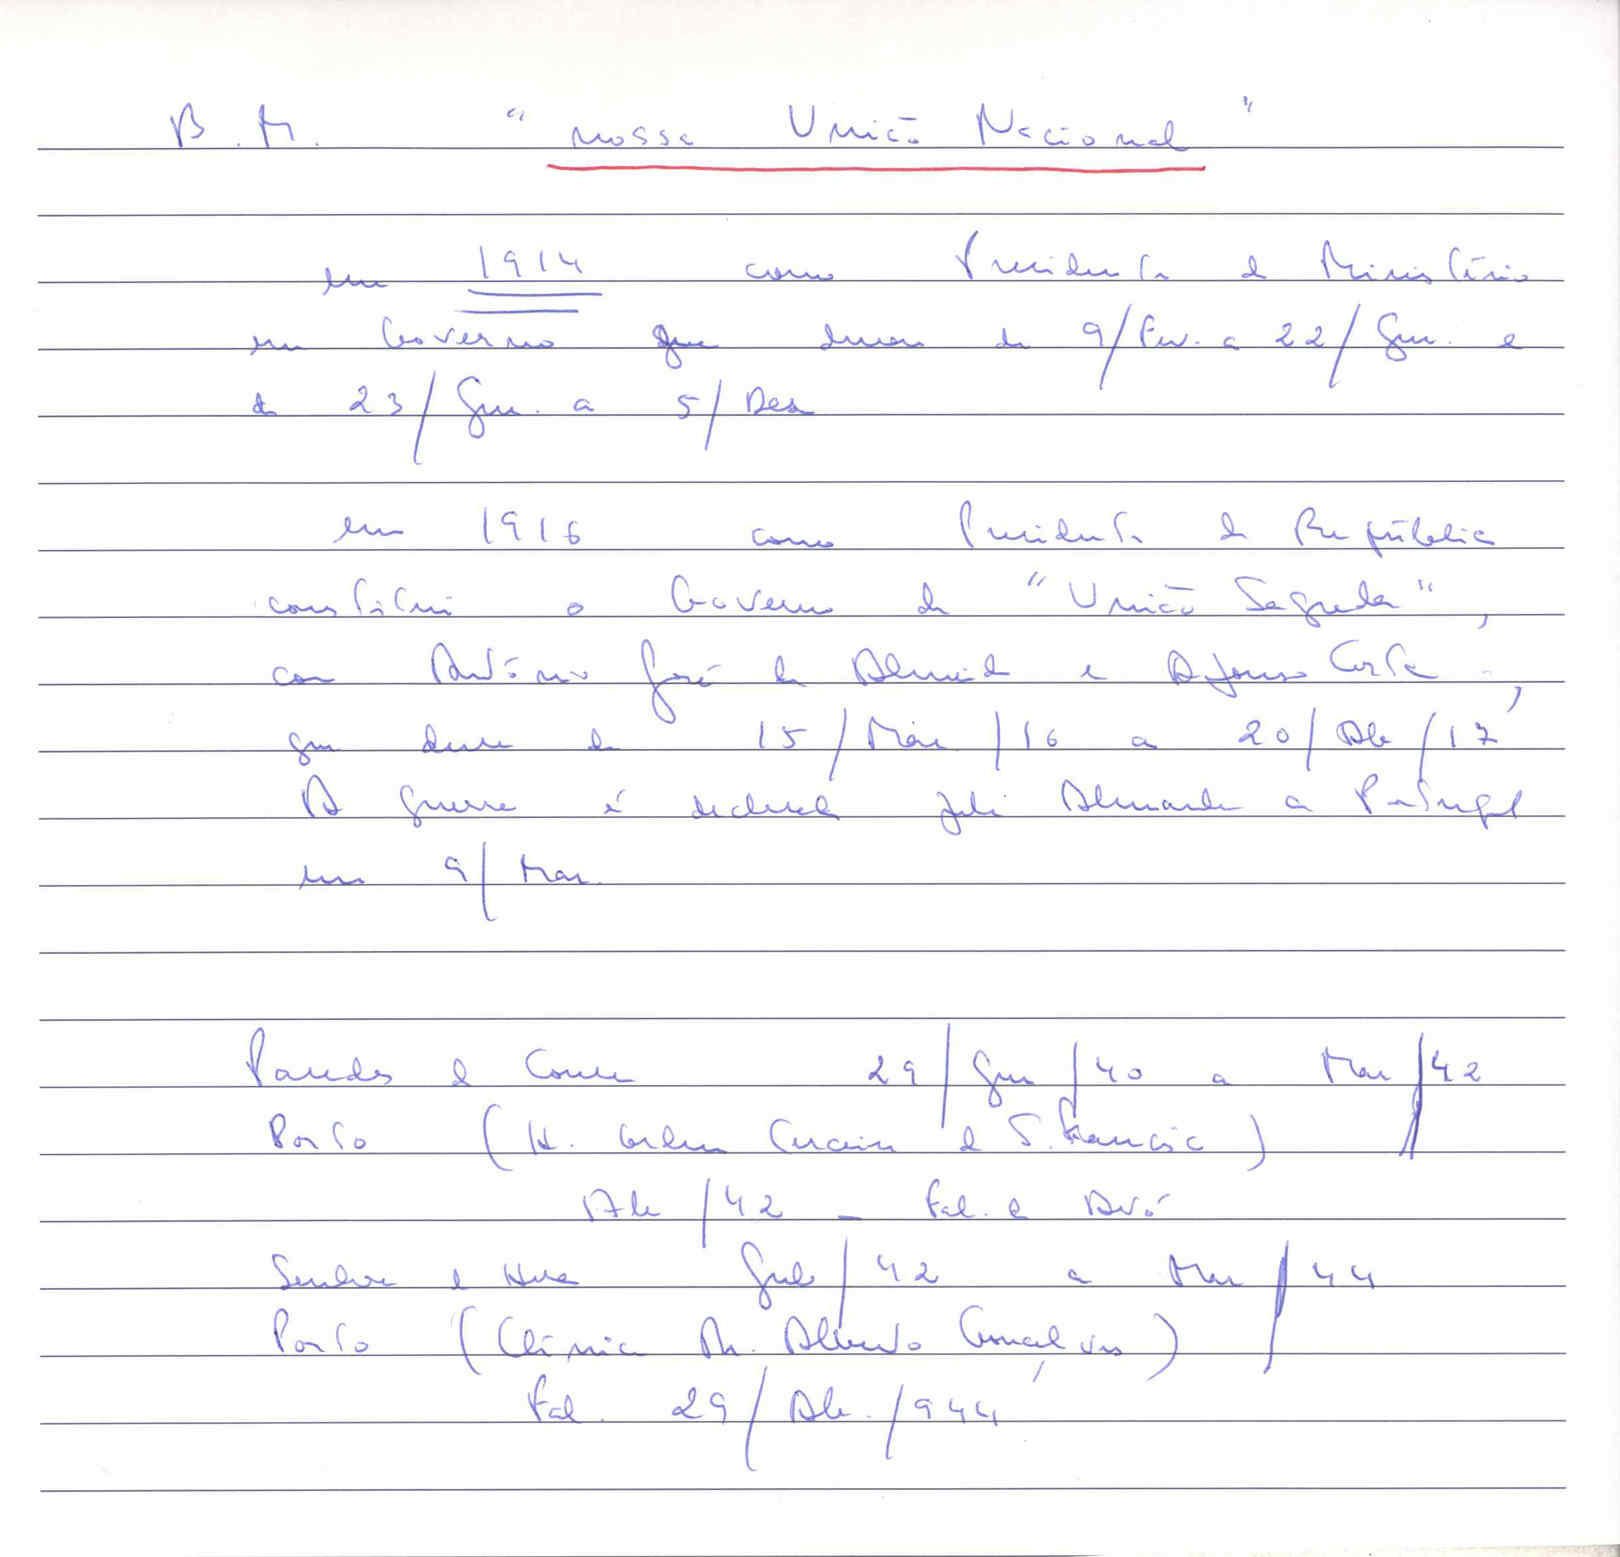 B. M. "nossa União Nacional"
em 1914 como Presidente do Ministério
um Governo que durou de 9/Fev. a 22/Jun. e
de 23/Jun. a 5/Dez
em 1916 como Presidente da República
constitui o Governo da "União Sagrada",
com António José de Almeida e Afonso Costa -,
que dura de 15/Mar/16 a 20/Abr/17
A guerra é declarada pela Alemanha a Portugal
em 9/Mar.
Paredes de Coura 29/Jun/40 a Mar/42
Porto (H. Ordem Terceira de S. Francisco)
Abr/42 - Fal. a Avó
Senhora da Hora Jul/42 a Mar/44
Porto (Clínica Dr. Alberto Gonçalves)
Fal. 29/Abr./944